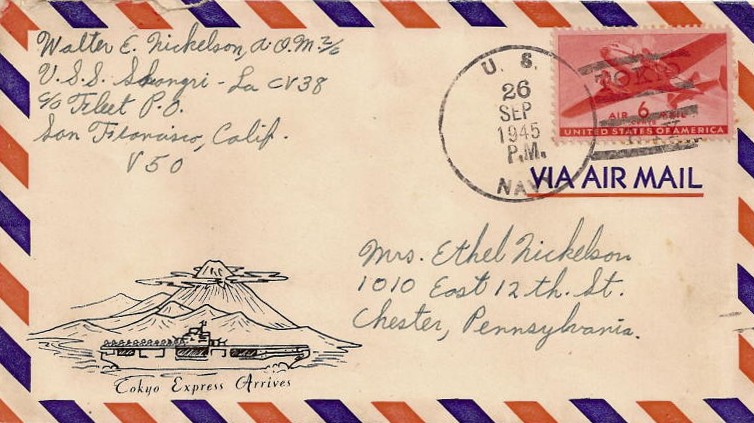 Walter E. Nickelson, A.O.M. 2/c
U.S.S. Shangri-La CV38
c/o Fleet P.O.
San Francisco, Calif.
V50
U. S.
26
SEP
1945
P.M.
NAVY
TOKYO
AIR 6 MAIL
UNITED STATES OF AMERICA
VIA AIR MAIL
Mrs. Ethel Nickelson
1010 East 12th. St.
Chester, Pennsylvania.
Tokyo Express Arrives